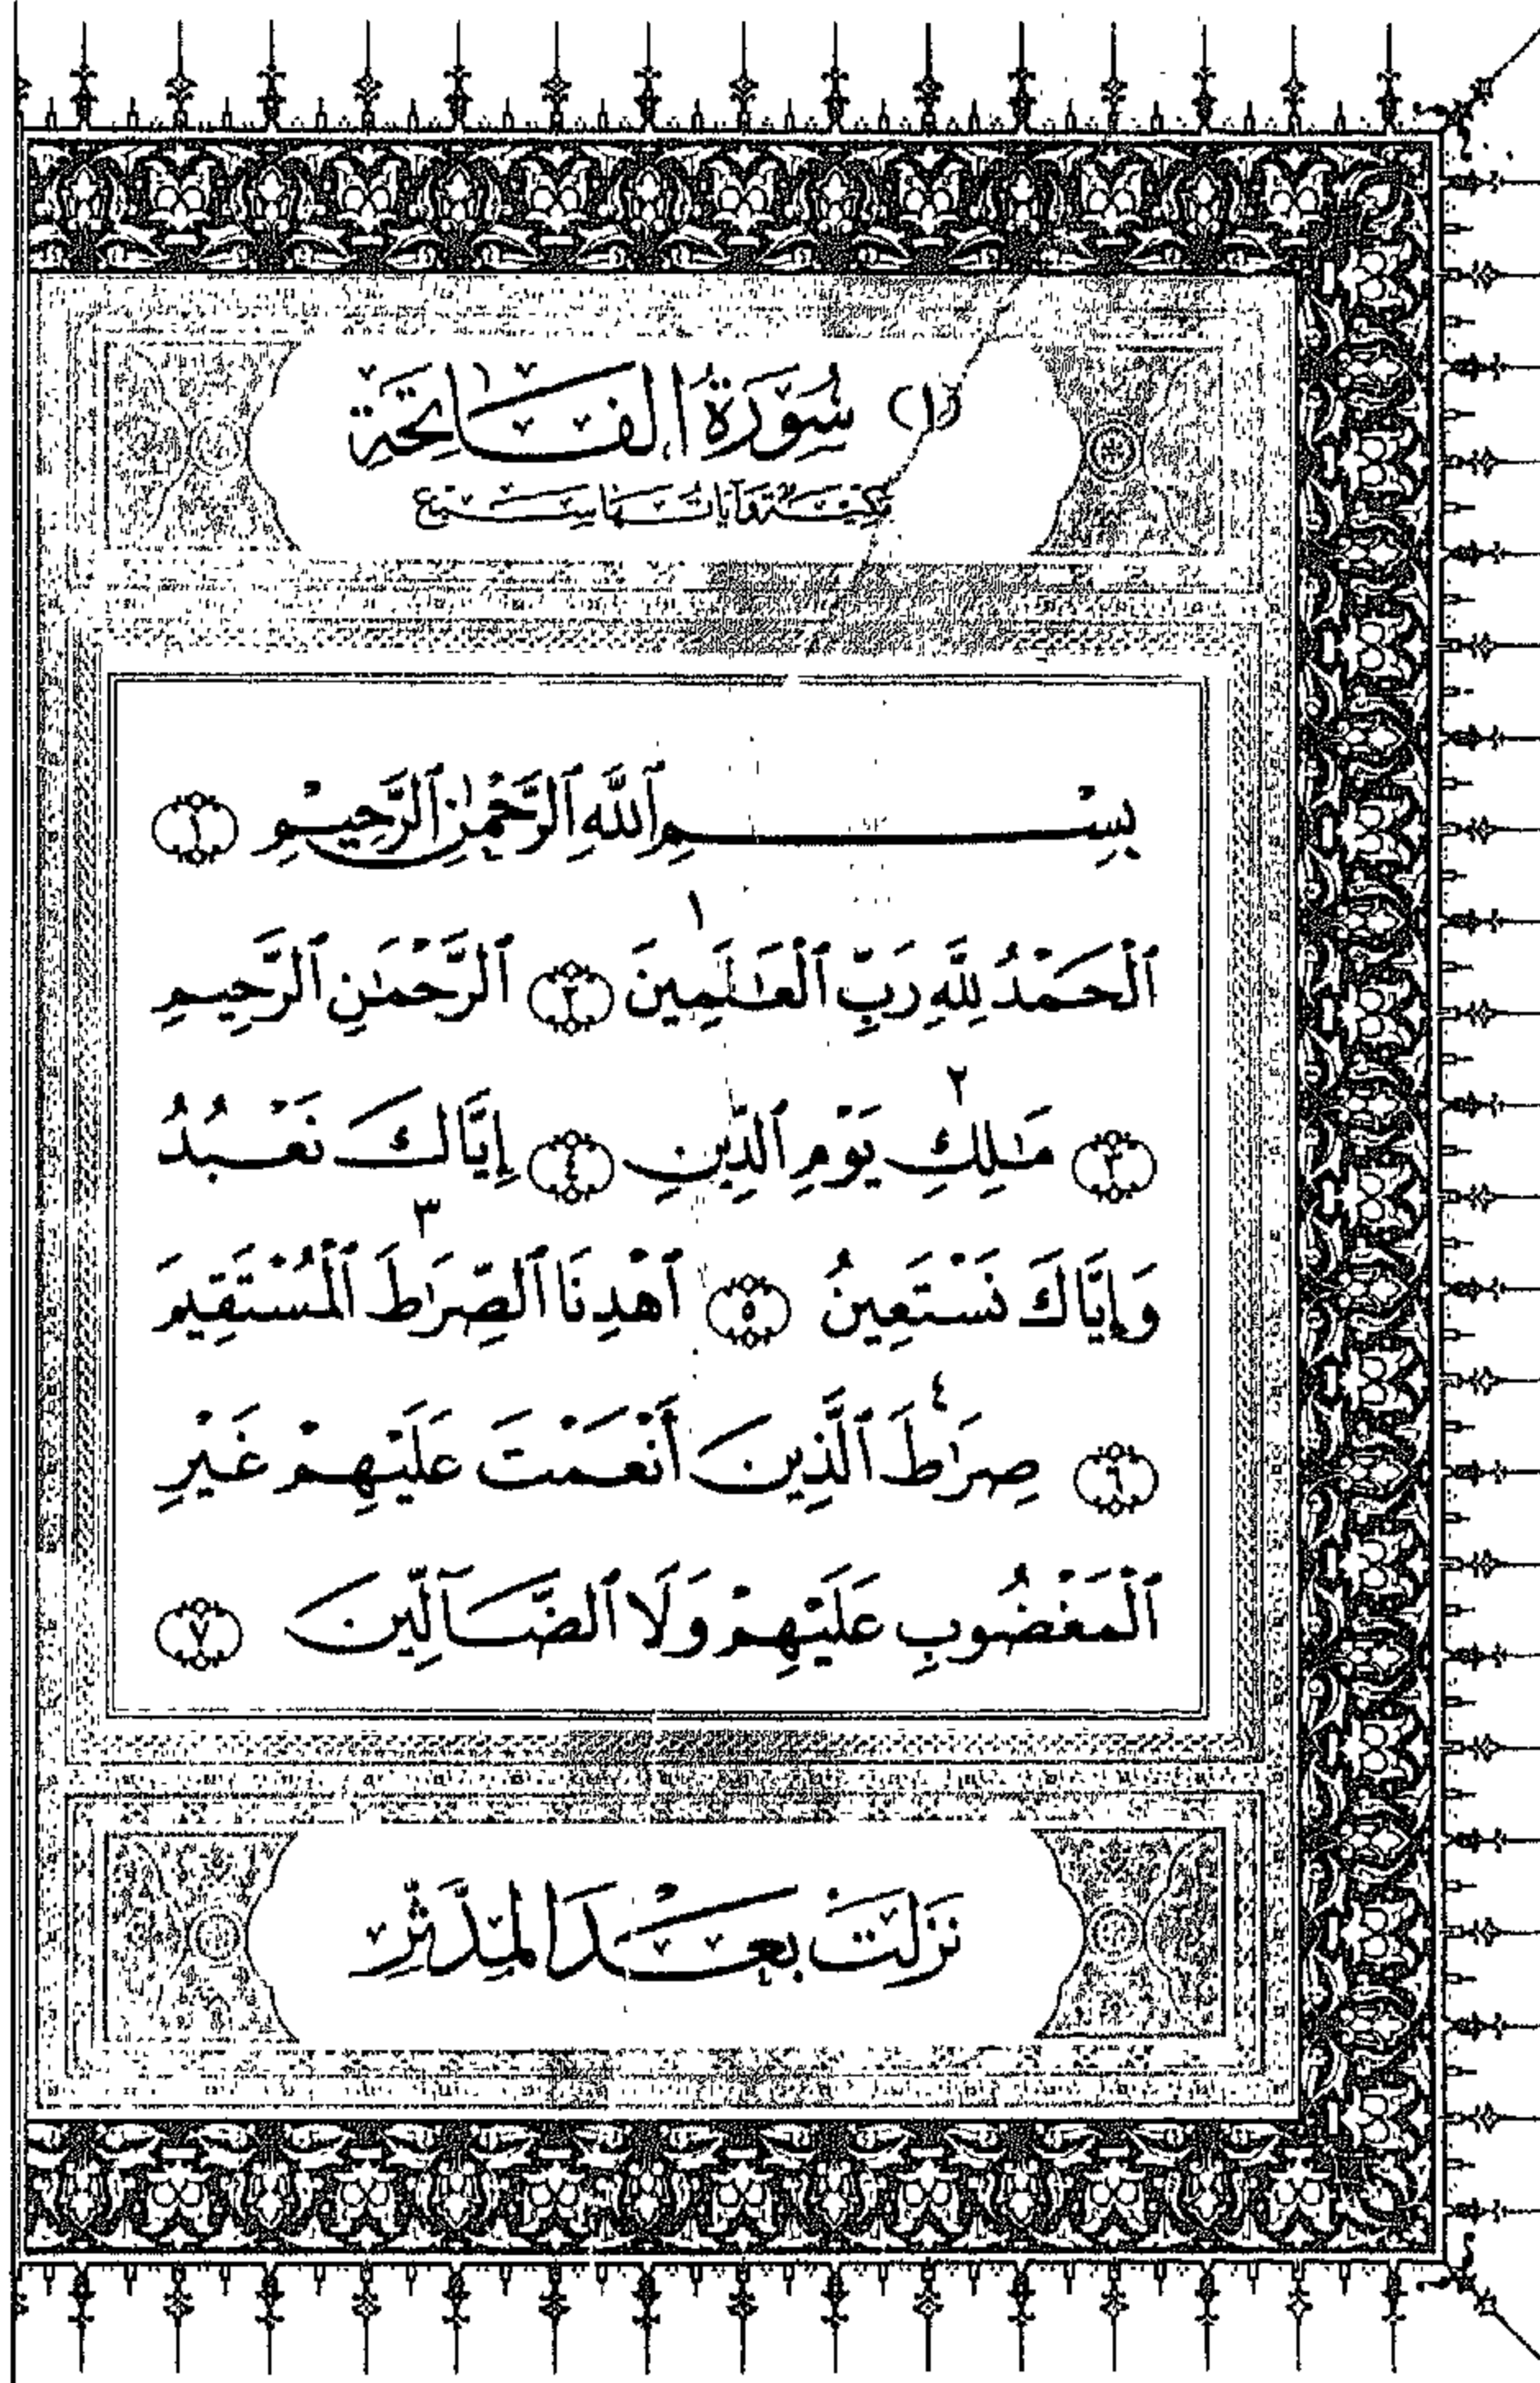 (١) سُورَةُ الفَاتِحَة
مَكِيَّة وَآيَاتُهَا سَبْع
بِسْمِ ٱللَّهِ ٱلرَّحْمَٰنِ ٱلرَّحِيمِ ١
١
ٱلْحَمْدُ لِلَّهِ رَبِّ ٱلْعَٰلَمِينَ ٢ ٱلرَّحْمَٰنِ ٱلرَّحِيمِ
٢
٣ مَٰلِكِ يَوْمِ ٱلدِّينِ ٤ إِيَّاكَ نَعْبُدُ
٣
وَإِيَّاكَ نَسْتَعِينُ ٥ ٱهْدِنَا ٱلصِّرَٰطَ ٱلْمُسْتَقِيمَ
٤
٦ صِرَٰطَ ٱلَّذِينَ أَنْعَمْتَ عَلَيْهِمْ غَيْرِ
ٱلْمَغْضُوبِ عَلَيْهِمْ وَلَا ٱلضَّآلِّينَ ٧
نَزَلَتْ بَعْدَ المدَّثِّر